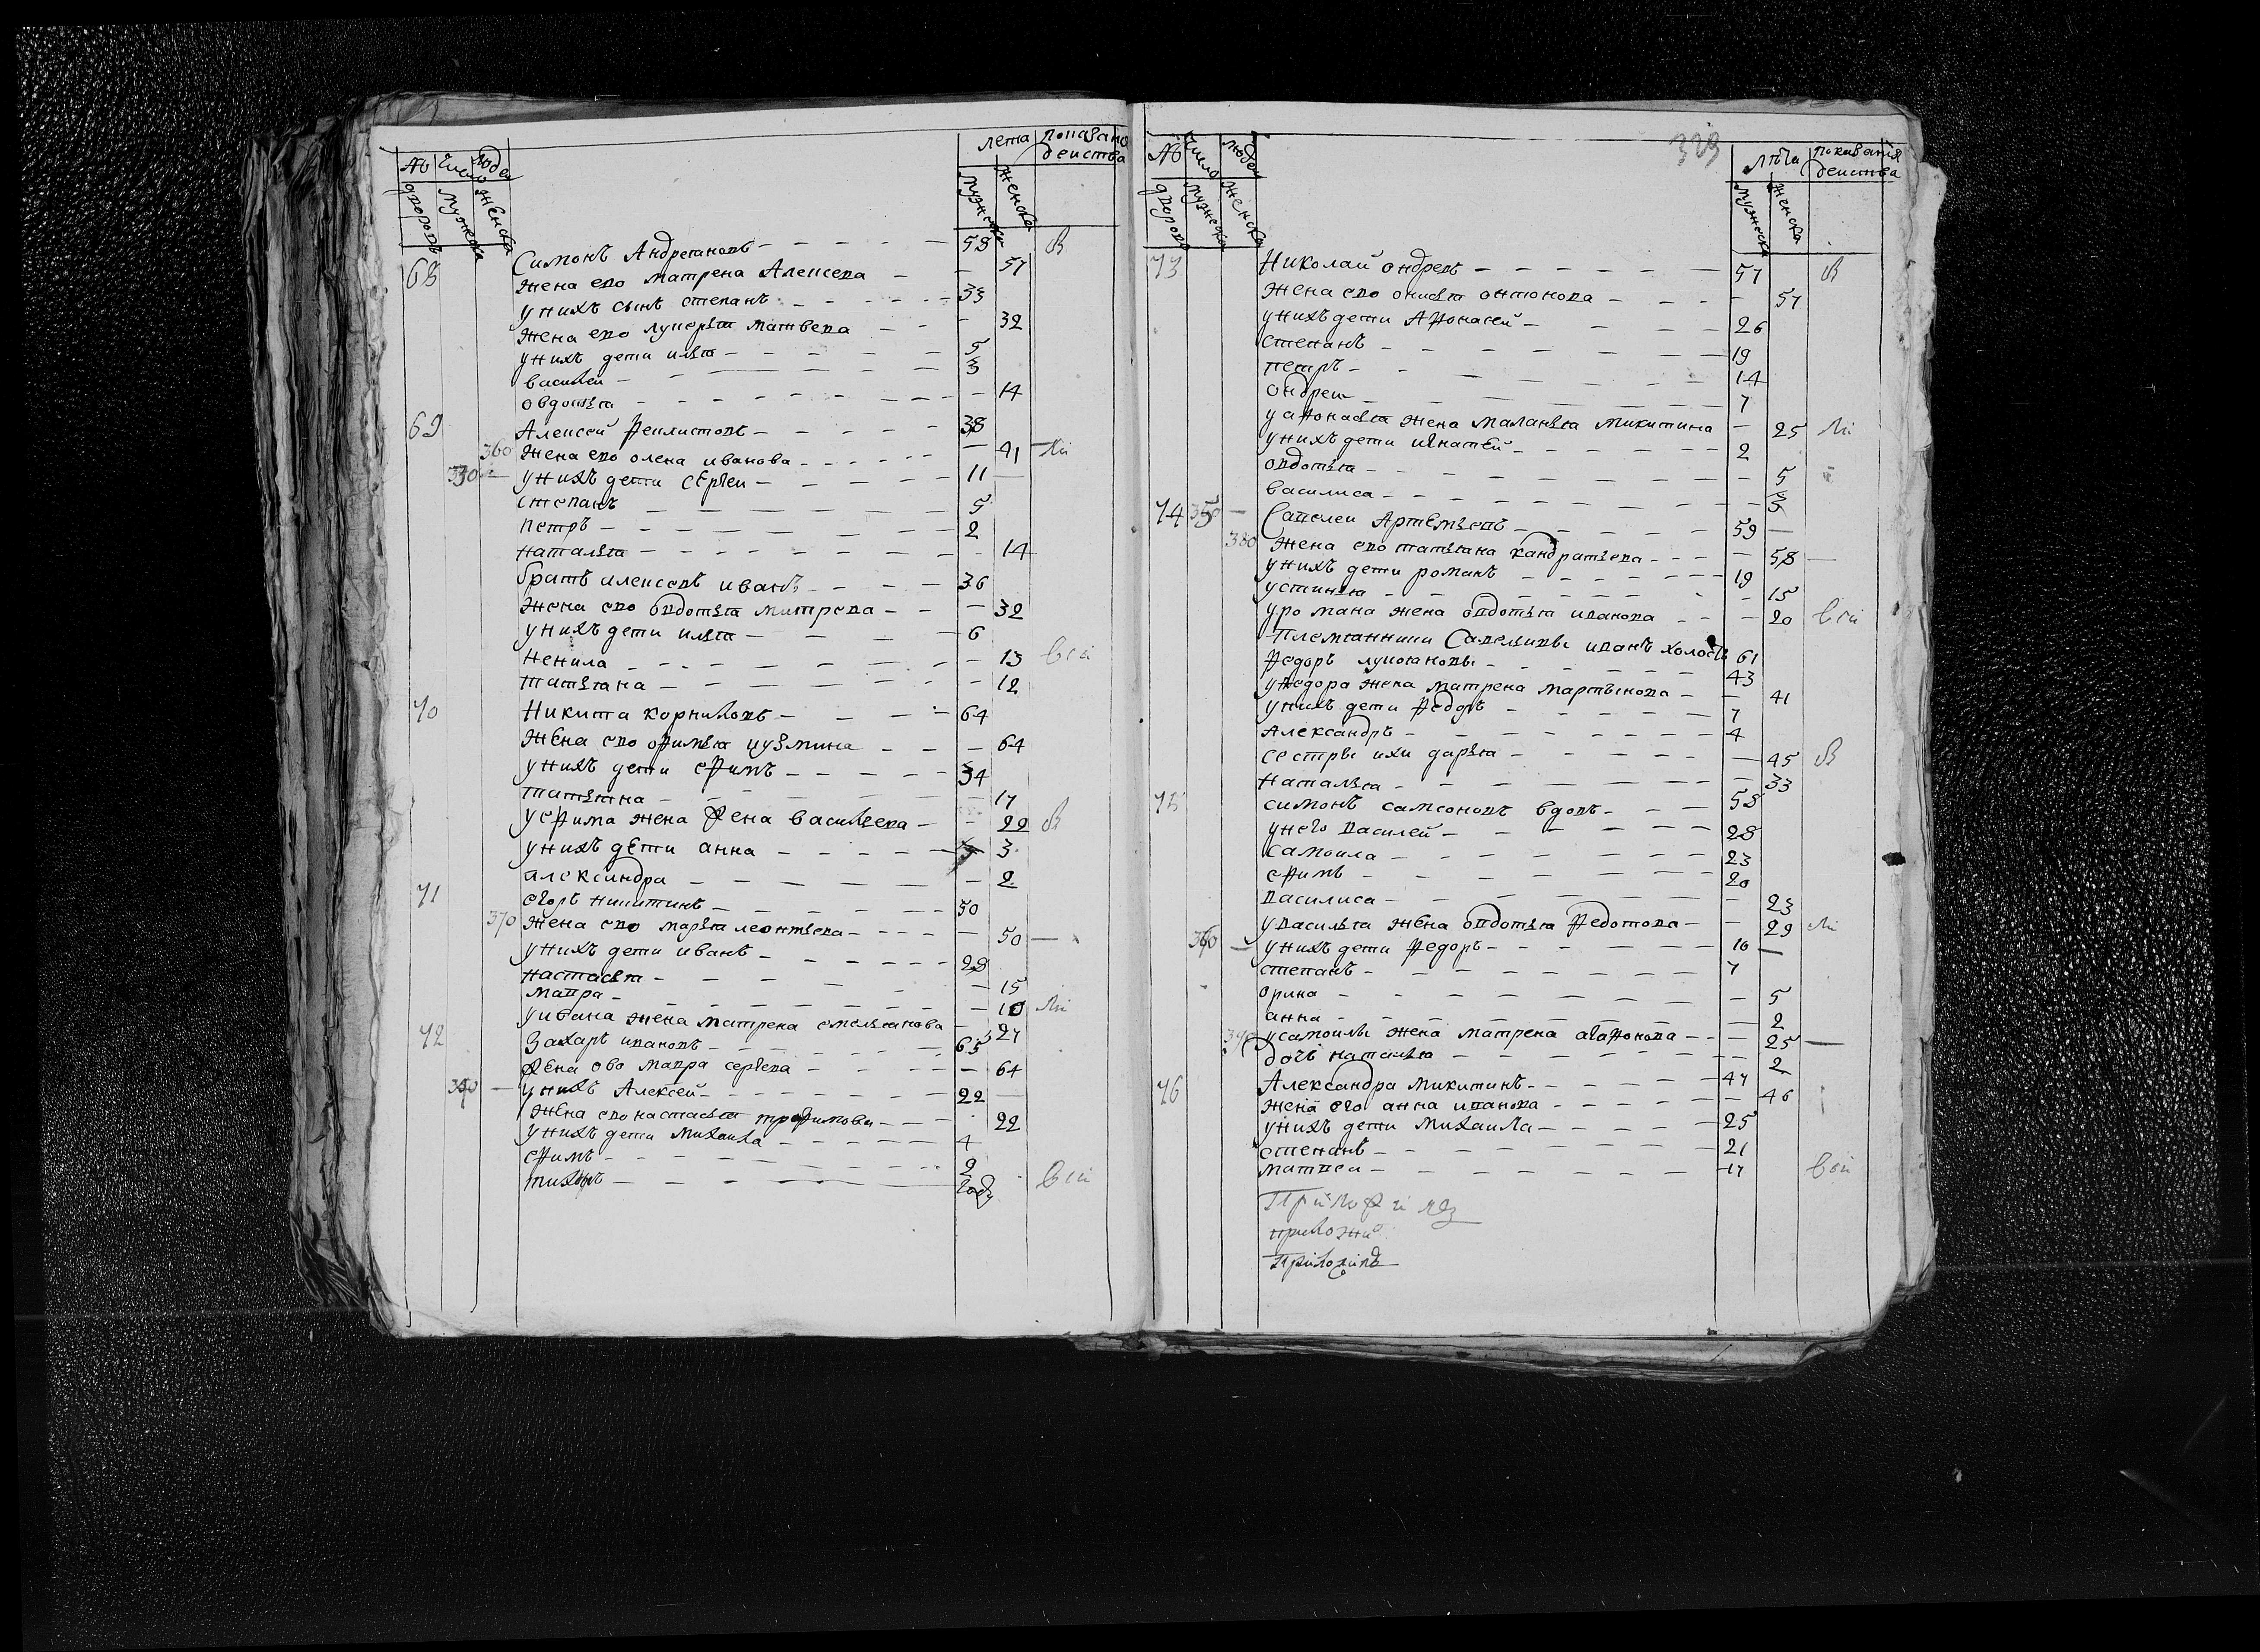 № число людей лета показано
действа
дворовъ мужеска женска мужеска женска
68 Симонъ Андреяновъ 58 в
жена ево матрена Алексева 57
у нихъ сынъ степанъ 33
жена ево лукерья матвева 32
у нихъ дети илья 5
василей 3
овдотья 14
69 Алексей феклистовъ 38
360 жена ево олена иванова 41
330 у нихъ дети сергеи 11
степанъ 5
петръ 2
наталья 14
братъ алексевъ иванъ 36
жена ево овдотья митрева 32
у нихъ дети илья 6
ненила 13 всй
татьяна 12
70 Никита корниловъ 64
жена ево офимья кузмина 64
у нихъ дети ефимъ 34
татьяна 17
у ефима жена фена васильева 22 в
у нихъ дети анна 3
александра 2
71 егоръ никитинъ 50
370 жена ево марья леонтьева 50
у нихъ дети иванъ 28
настасья 15
мавра 10
у ивана жена матрена емельянова 27
72 Захаръ ивановъ 65
жена ево мавра сергева 64
340 у нихъ Алексей 22
жена ево настасья трофимова 22
у нихъ дети михаила 4
ефимъ 2
тихонъ году всй
329
№ число людей лѣта показания
действа
дворовъ мужеска женска мужеска женска
73 Николай ондревъ 57 в
жена ево онисья онтонова 57
у нихъ дети Афонасей 26
степанъ 19
петръ 14
ондреи 7
у афонасья жена маланья микитина 25
у нихъ дети игнатей 2
овдотья 5
василиса 3
74 350 Савелеи Артемьевъ 59
380 жена ево татьяна кандратьева 58
у нихъ дети романъ 19
устинья 15
у романа жена овдотья иванова 20 всй
племянники Савельивы иванъ холостъ 61
федоръ лукояновы 43
у федора жена матрена мартынова 41
у нихъ дети федоръ 7
александръ 4
сестры ихи дарья 45 в
наталья 33
75 симонъ самсоновъ вдовъ 58
у него василей 28
самоила 23
ефимъ 20
василиса 23
у василья жена овдотья федотова 29
360 у нихъ дети федоръ 10
степанъ 7
орина 5
анна 2
390 у самоилы жена матрена агафонова 25
дочь наталья 2
76 Александра микитинъ 47
жена его анна иванова 46
у нихъ дети михаила 25
степанъ 21
матвеи 17 всй